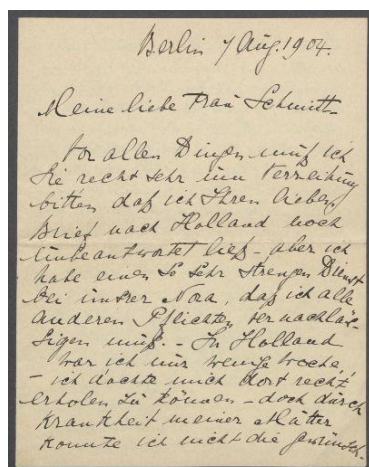 Berlin 7 Aug. 1904.
Meine liebe Frau Schmitt
Vor allen Dingen muß ich
Sie recht sehr um Verzeihung
bitten daß ich Ihren lieben
Brief nach Holland noch
unbeantwortet ließ - aber ich
habe einen so sehr strengen Dienst
bei unsrer Nora, daß ich alle
anderen Pflichten vernachläs-
sigen muß. - In Holland
war ich nur wenige Woche,
- ich dachte mich dort recht
erholen zu können - doch durch
Krankheit meiner Mutter
konnte ich nicht die gewünsch-